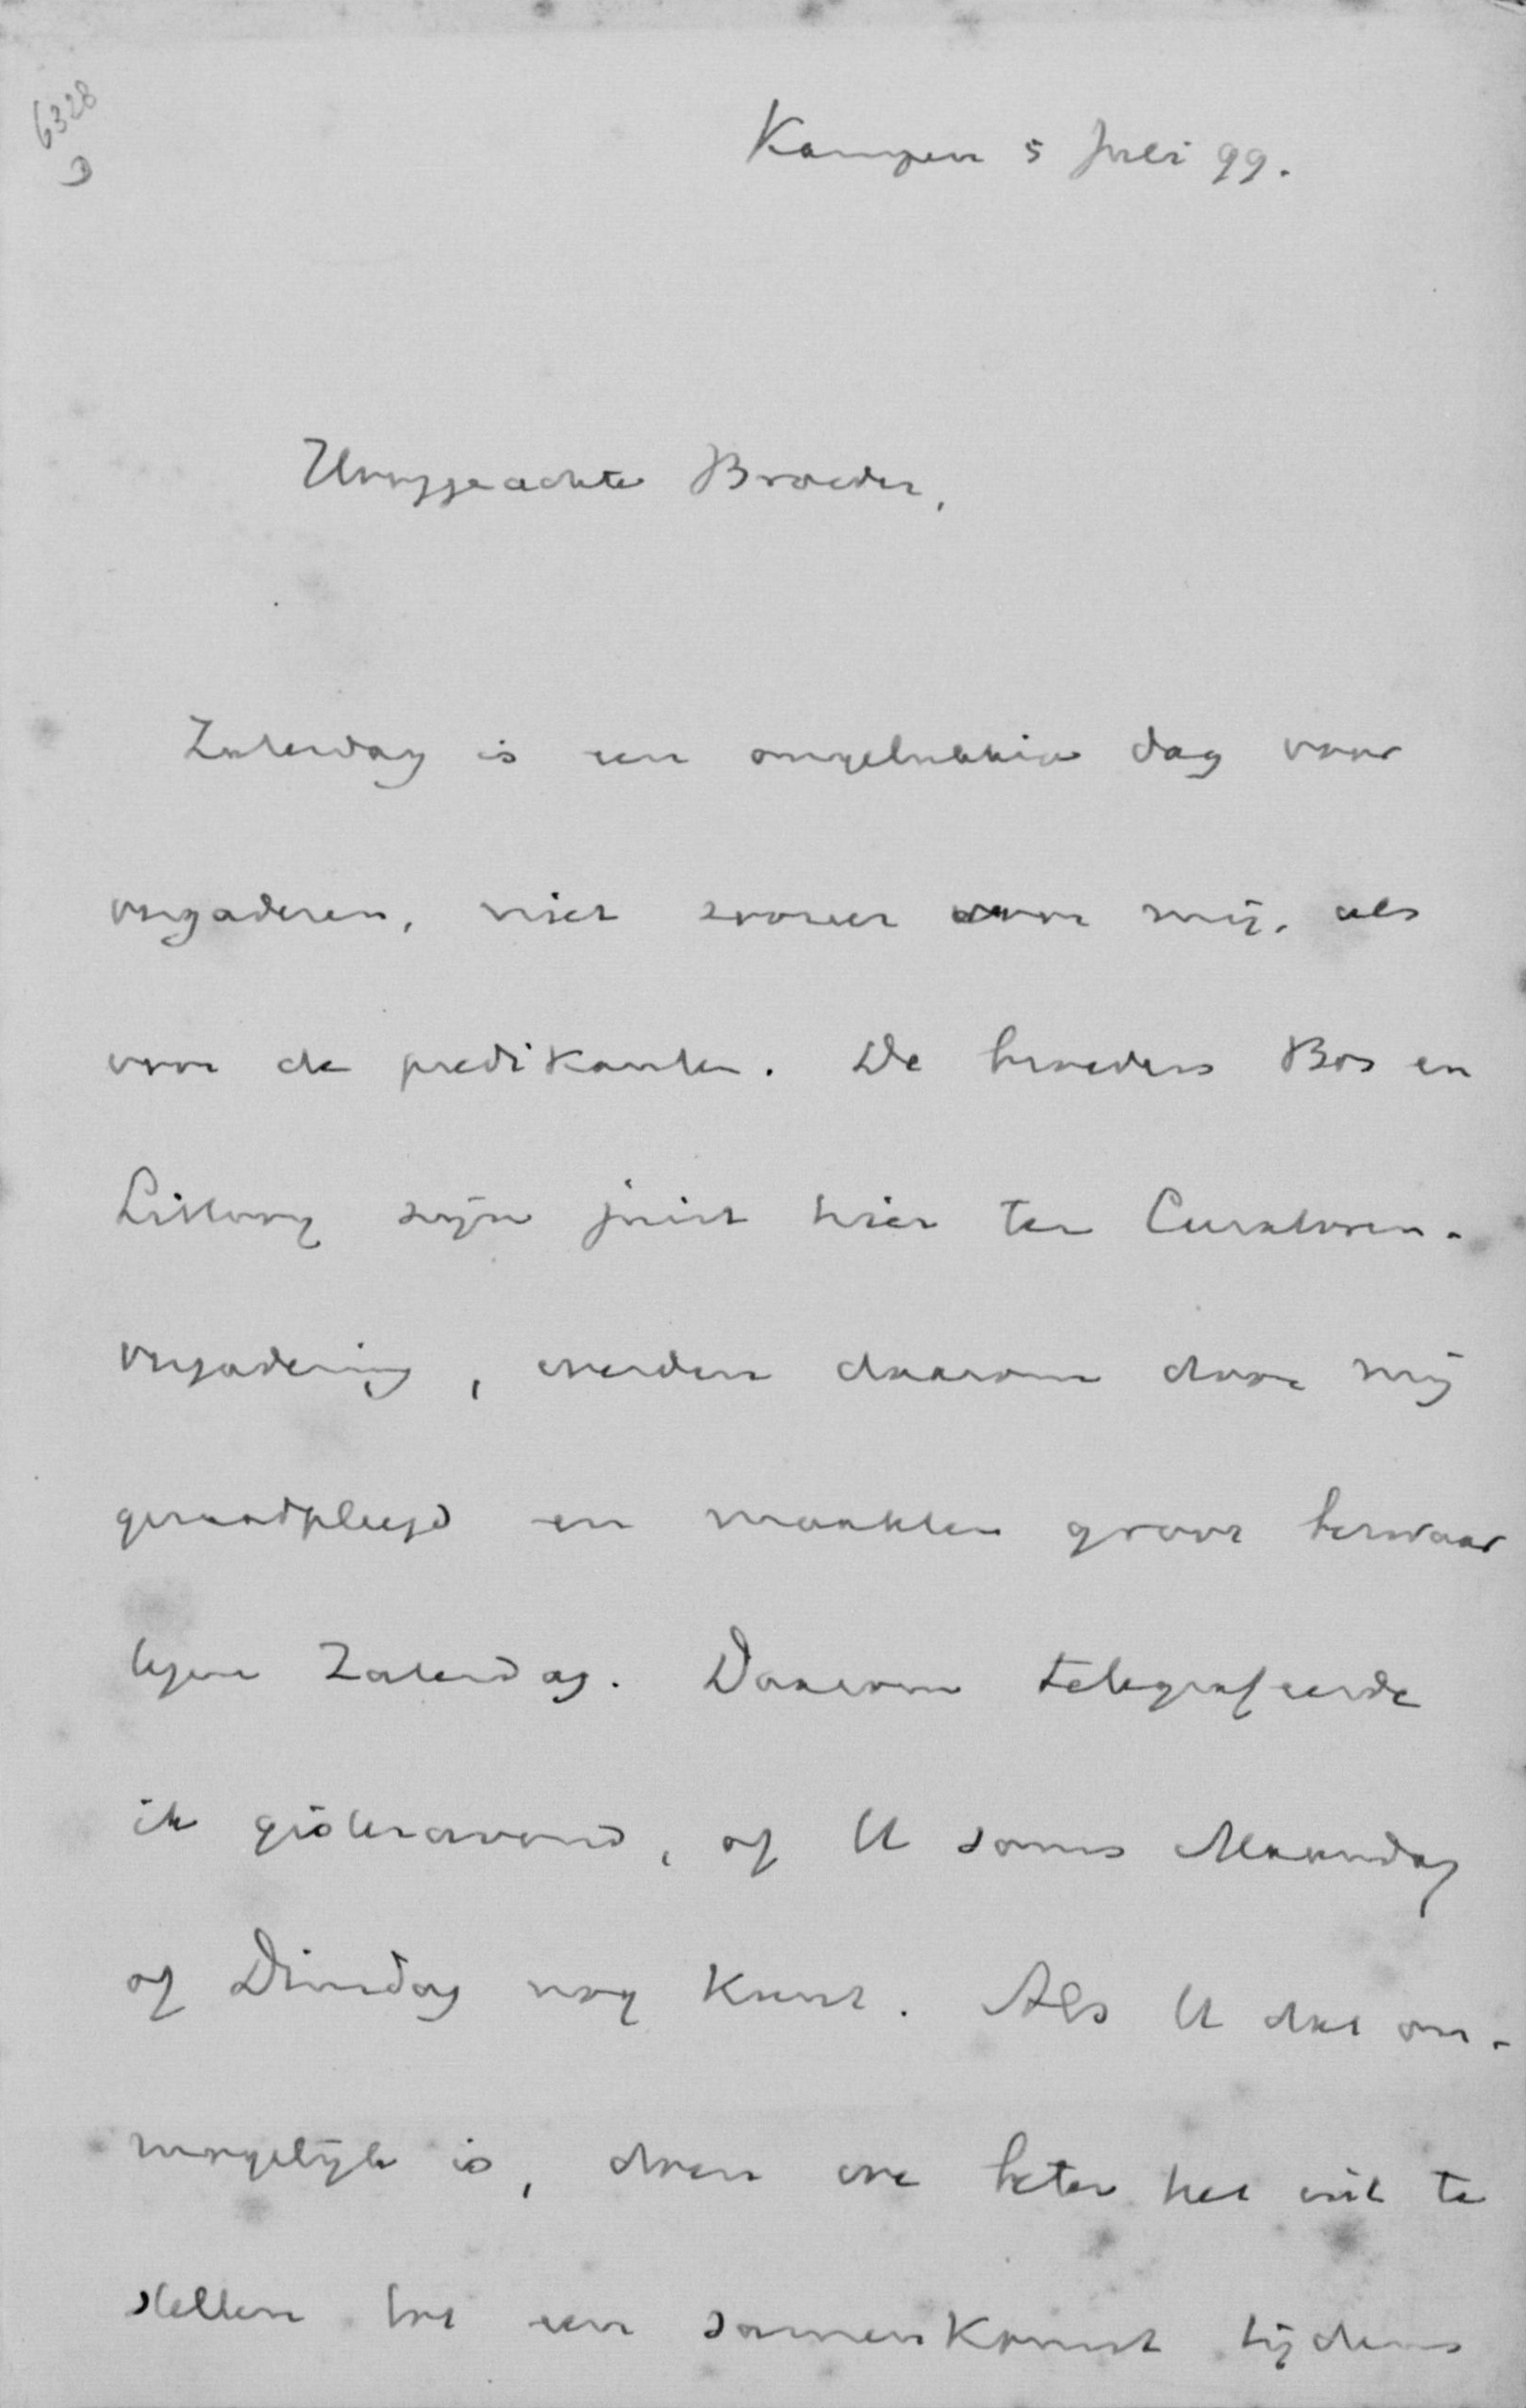 6328
D
Kampen 5 Juli 99.
Hooggeachte Broeder,
Zaterdag is een ongelukkige dag voor
vergaderen, niet zoozeer voor mij, als
voor de predikanten. De broeders Bos en
Littooy zijn juist hier ter Curatoren-
vergadering, werden daarom door mij
geraadpleegd en maakten groot bezwaar
tegen Zaterdag. Daarom telegrafeerde
ik gisteravond, of U soms Maandag
of Dinsdag nog kunt. Als U dat on-
mogelijk is, doen we beter het uit te
stellen tot een samenkomst tijdens